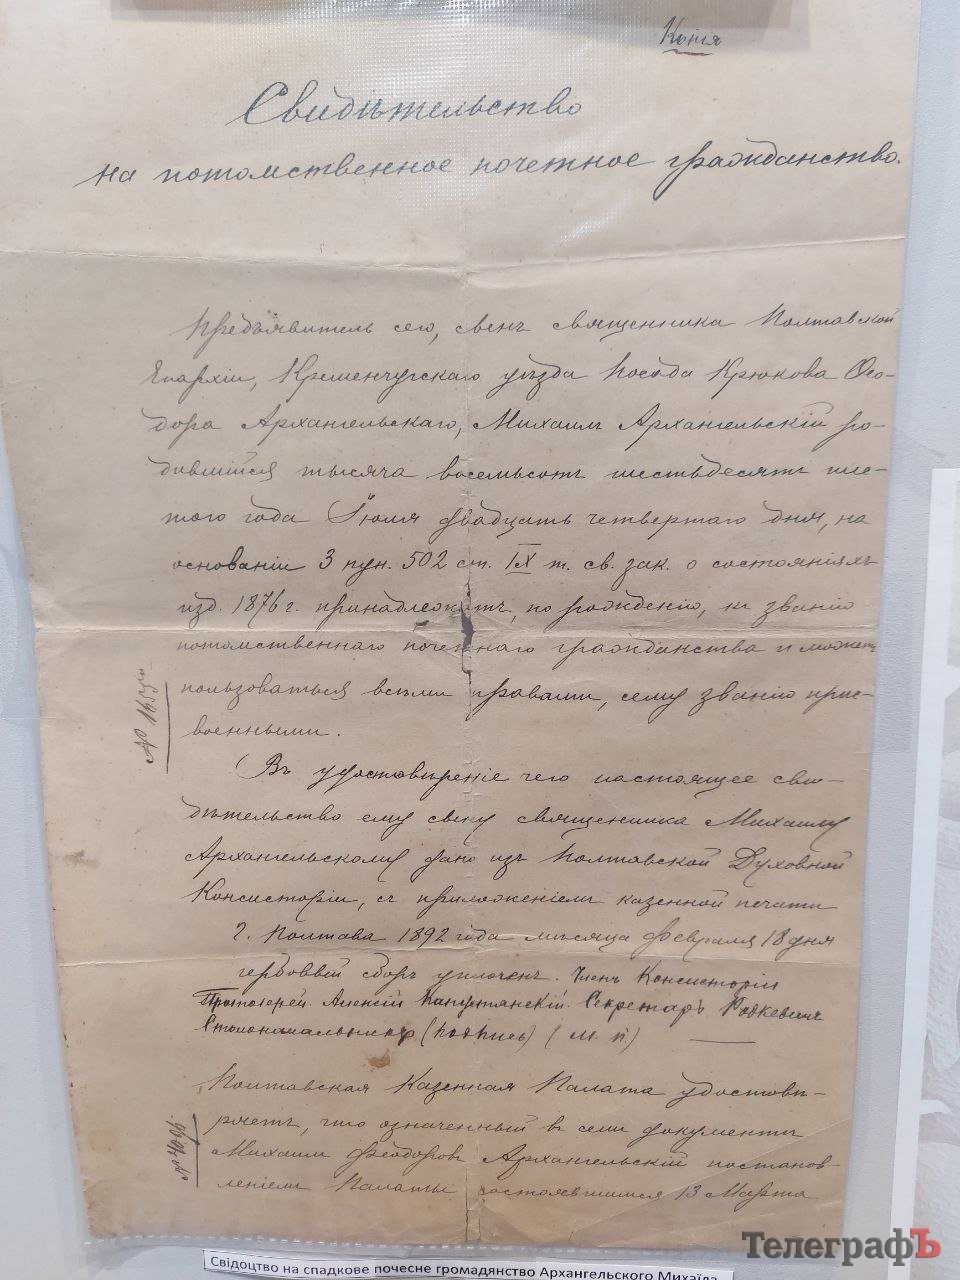 Копія
Свидѣтельство
на потомственное почетное гражданство.
Предъявитель сего, сынъ священника Полтавской
Епархіи, Кременчугскаго уѣзда Посада Крюкова Ѳео-
дора Архангельскаго, Михаилъ Архангельскій ро-
дившійся тысяча восемьсотъ шестьдесятъ шес-
таго года Іюля двадцать четвертаго дня, на
основаніи 3 пун. 502 ст. IX т. св. зак. о состояніяхъ
изд. 1876 г. принадлежитъ, по рожденію, къ званію
потомственнаго почетнаго гражданства и можетъ
пользоваться всѣми правами, сему званію прис-
военными.
Въ удостовѣреніе чего настоящее сви-
дѣтельство ему сыну священника Михаилу
Архангельскому дано изъ Полтавской Духовной
Консисторіи, съ приложеніемъ казенной печати
Г. Полтава 1892 года мѣсяца февраля 18 дня
гербовый сборъ уплоченъ. Членъ Консисторіи
Протоіерей Алексій Капустянскій. Секретарь
Столоначальникъ (подпись) (м. п.)
Полтавская Казенная Палата удостовѣ-
ряетъ, что означенный въ семъ документѣ
Михаилъ Ѳеодоровъ Архангельскій постанов-
леніемъ Палаты состоявшимся 13 Марта
Свідоцтво на спадкове почесне громадянство Архангельского Михаїла
ТелеграфЪ